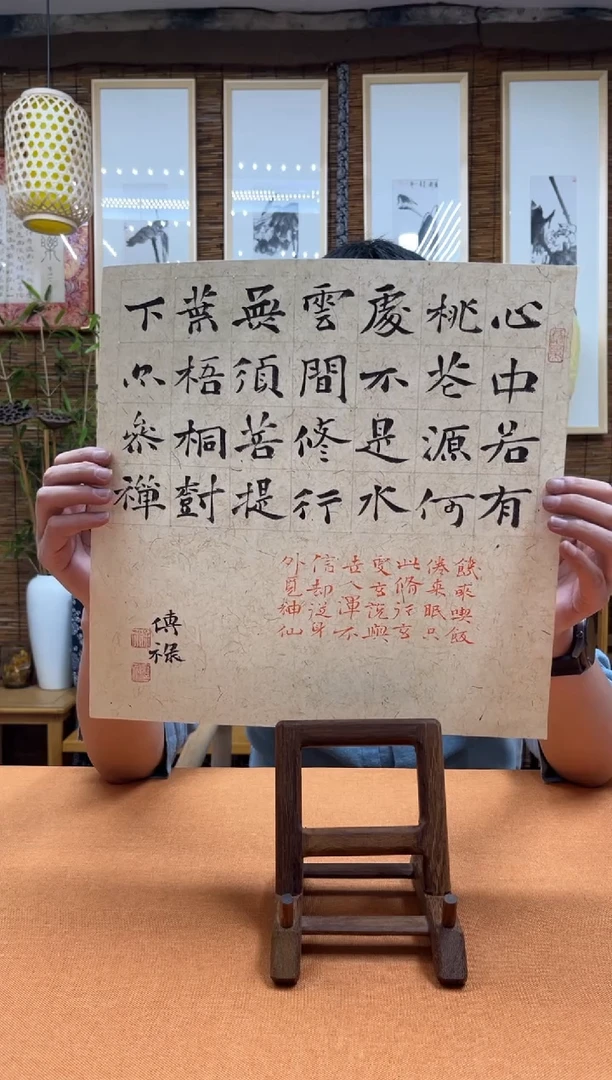 心中若有
桃花源何
處不是水
雲間修行
無須菩提
葉梧桐對
下只參禪
饑來喫飯
倦來眠只
此修行玄
更玄說與
世人渾不
信却從身
外覓神仙
傅祿